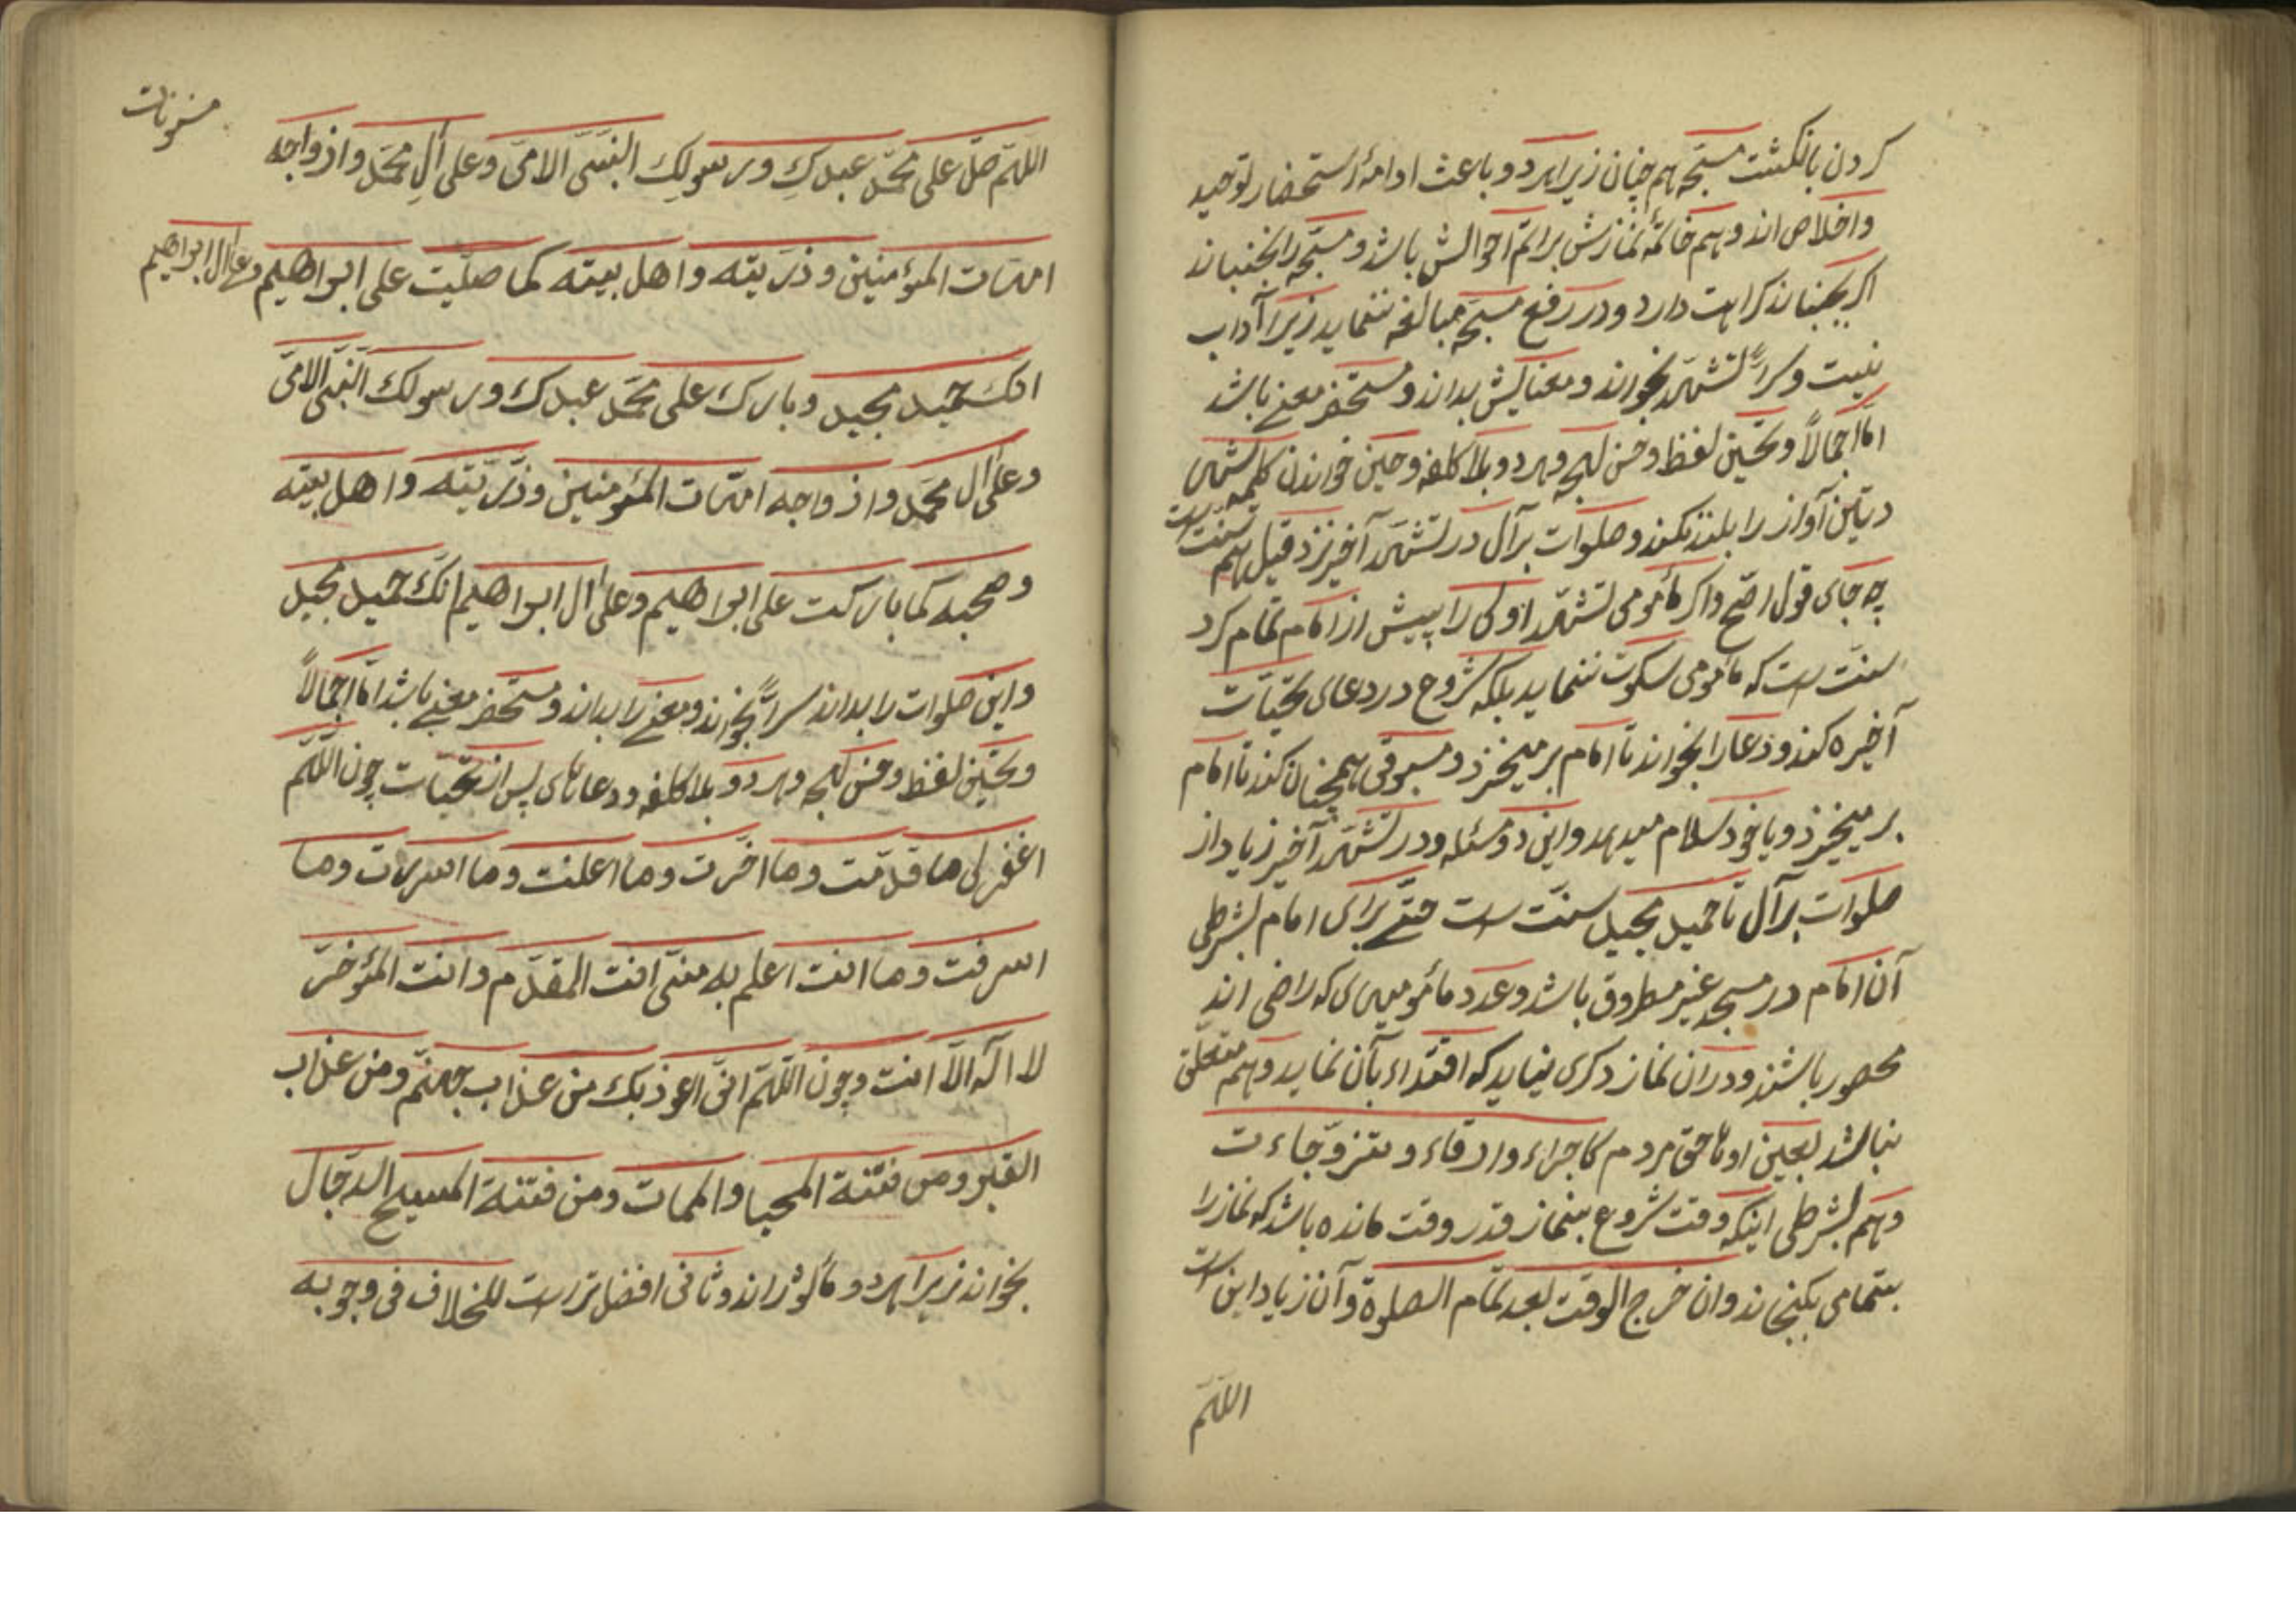 كردن بانگشت مسبّحه هم چنان زيرا هردو باعث ادامهٔ استحضار توحيد
واخلاص اند وهم خاتمهٔ نمازش براتمّ احوالش باشد ومسبّحه را نجنباند
اكر بجنباند كراهت دارد ودر رفع مسبّحه مبالغه ننمايد زيرا آداب
نيست وسرّاً تشهّد بخواند ومعنايش بداند ومستحضر معنى باشد
امّا اجمالاً وتحسين لفظ وحسن لهجه وهردو بلا كلفه وحين خواندن كلمهٔ
آواز را بلند نكند وصلوات برآل در تشهّد آخير نزد قيل هم سنّت است
چه جاى قول اصحّ واكر مأمومى تشهّد اولى را پيش از امام تمام كرد
سنّت است كه مأمومى سكوت ننمايد بلكه شروع در دعاى تحيّات
آخيره كند ودعا را بخواند تا امام برميخيزد ومسبوقى همچنان كند تا امام
برميخيزد ويا خود سلام ميدهد واين دو مسئله ودر تشهّد آخير زياد از
صلوات برآل تا حميد مجيد سنّت است حتّى براى امام بشرطى
آن امام در مسجد غير مطروق باشد وعدد مأمومين كه راضى اند
محصور باشند ودران نماز ديكرى نيايد كه اقتداء بآن نمايد وهم متعلّق
نباشد بعين اوناحقّ مردم كاجراء وارقاء ومتزوّجاءت
وهم بشرطى اينكه وقت شروع بنماز قدر وقت مانده باشد كه نماز را
بتمامى بكنجاند وان خرج الوقت بعد تمام الصلوة وآن زياد اين است
اللهمّ
مسنونات
اللهمّ صلّ على محمّد عبدكِ ورسولكِ النبىّ الامىّ وعلى آلِ محمّد وازواجه
امّهات المؤمنين وذرّيته واهل بيته كما صلّيت على ابراهيم وعلى آل ابراهيم
انك حميد مجيد وبارك على محمّد عبدك ورسولك النبىّ الامىّ
وعلى آل محمّد وازواجه امّهات المؤمنين وذرّيّته واهل بيته
وصحبه كما باركت على ابراهيم وعلى آل ابراهيم انّك حميد مجيد
واين صلوات را بداند سرّاً بخواند ومعنى را بداند ومستحضر معنى باشد امّا اجمالاً
وتحسين لفظ وحسن لهجه وهردو بلا كلفه ودعاهاى پس از تحيّات چون اللّهمّ
اغفرلى ما قدّمت وما اخّرت وما اعلنت وما اسررت وما
اسرفت وما انت اعلم به منّى انت المقدّم وانت المؤخّر
لا اله الاّ انت وچون اللّهمّ انّى اعوذ بك من عذاب جهنّم ومن عذاب
القبر ومن فتنة المحيا والممات ومن فتنة المسيح الدجّال
بخواند زيرا هردو مأثور اند وثانى افضلتر است للخلاف فى وجوبه